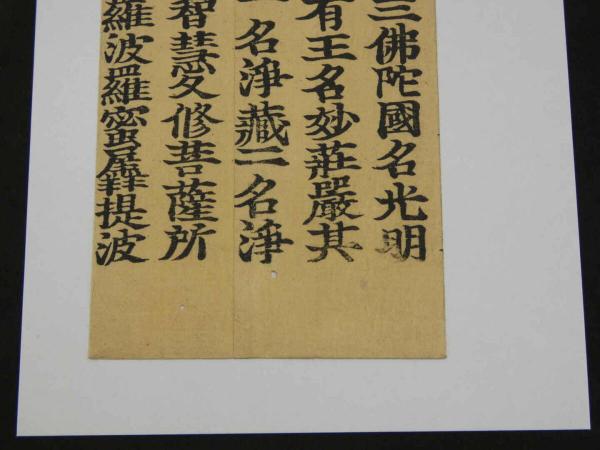 三佛陀國名光明
有王名妙莊嚴其
一名淨藏二名淨
智慧久修菩薩所
羅波羅蜜羼提波